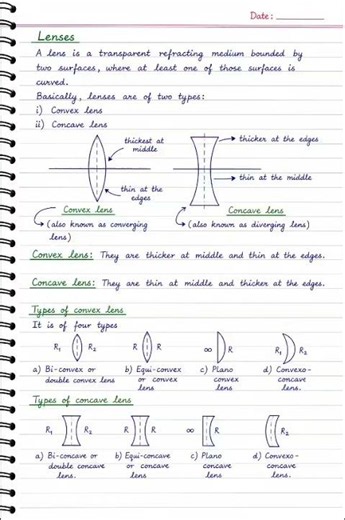 Date: ________
Lenses
A lens is a transparent refracting medium bounded by
two surfaces, where at least one of those surfaces is
curved.
Basically, lenses are of two types:
i) Convex lens
ii) Concave lens
thickest at
middle
thin at the
edges
thicker at the edges
thin at the middle
Convex lens
(also known as converging
lens)
Concave lens
(also known as diverging lens)
Convex lens: They are thicker at middle and thin at the edges.
Concave lens: They are thin at middle and thicker at the edges.
Types of convex lens
It is of four types
R₁ R₂ R R ∞ R R₁ R₂
a) Bi-convex or
double convex lens
b) Equi-convex
or convex
lens
c) Plano
convex
lens
d) Convexo-
concave
lens
Types of concave lens
R₁ R₂ R R ∞ R R₁ R₂
a) Bi-concave or
double concave
lens.
b) Equi-concave
or concave
lens
c) Plano
concave
lens
d) Convexo-
concave
lens.